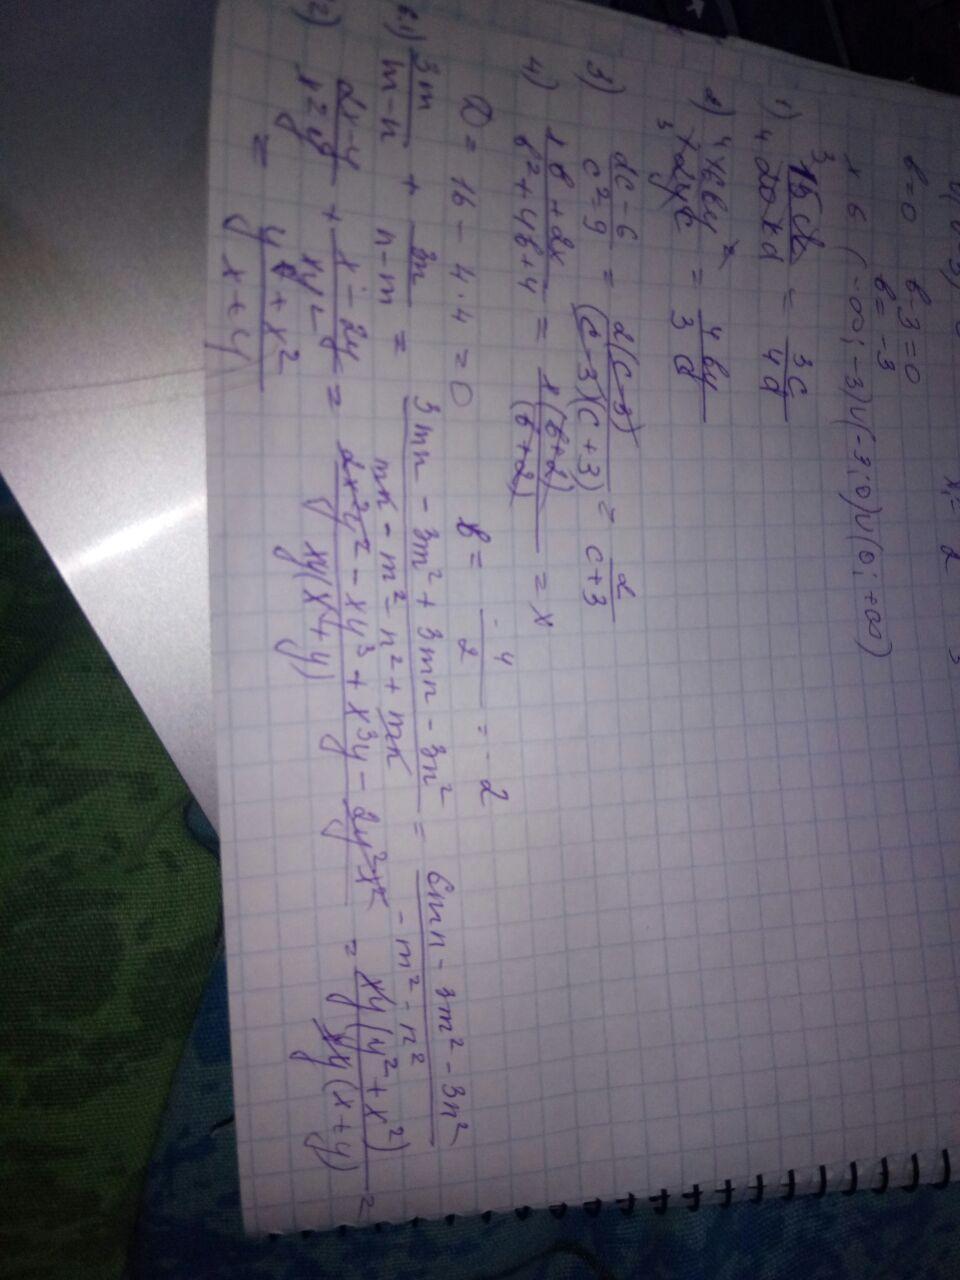 b=0 b-3=0
b=-3
x ∈ (-∞; -3)∪(-3; 0)∪(0; +∞)
1) 15cx/20xd = 3c/4d
= 4by/3
3) 2c-6/c²-9 = 2(c-3)/(c-3)(c+3) = 2/c+3
4) xb+2x/b²+4b+4 = x(b+2)/(b+2) = x
D = 16 - 4·4 = 0 b = -4/2 = -2
3m/m-n + 3n/n-m = 3mn - 3m² + 3mn - 3n²/mn - m² - n² + mn = 6mn - 3m² - 3n²/-m² - n²
2) 2x-y/x²y + x-2y/xy² = 2x²y² - xy³ + x³y - 2y²x²/xy(x+y) = xy(y²+x²)/xy(x+y) =
= y²+x²/x+y